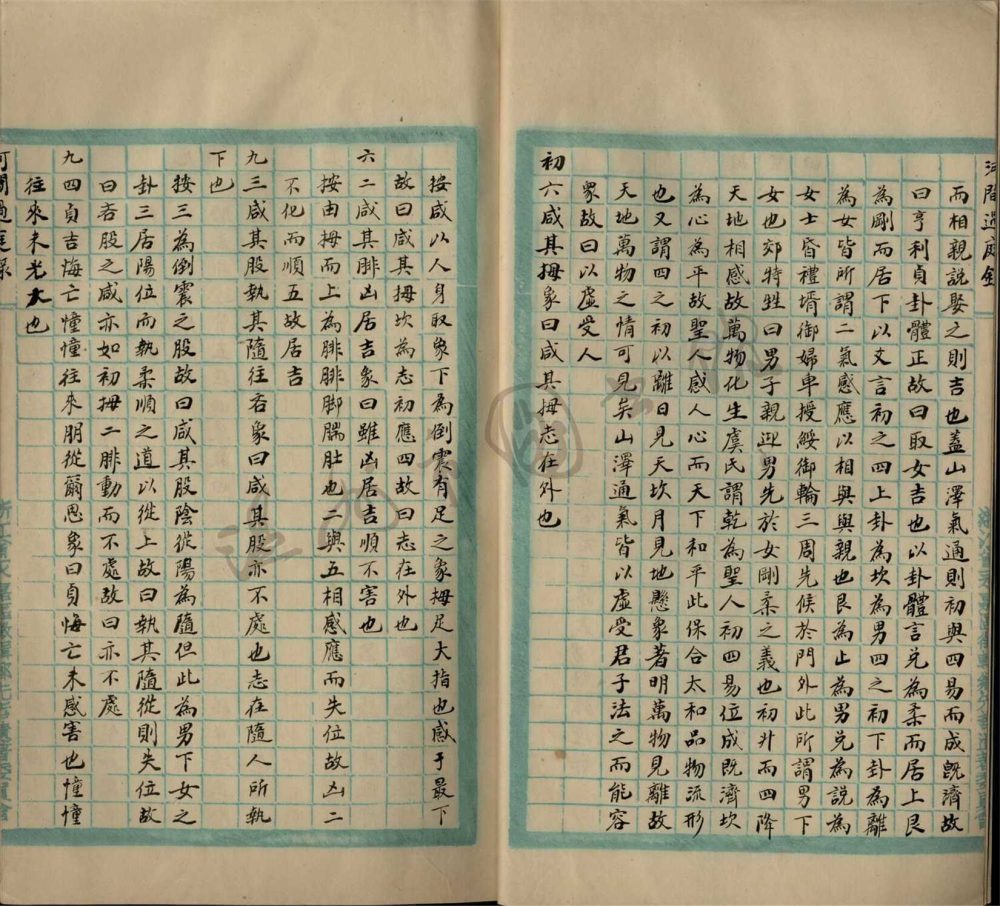 河間過庭錄
而相親說娶之則吉也蓋山澤氣通則初與四易而成既濟故
曰亨利貞卦體正故曰取女吉也以卦體言兌為柔而居上艮
為剛而居下以爻言初之四上卦為坎為男四之初下卦為離
為女皆所謂二氣感應以相與與親也艮為止為男兌為說為
女士昏禮壻御婦車授綏御輪三周先候於門外此所謂男下
女也郊特牲曰男子親迎男先於女剛柔之義也初升而四降
天地相感故萬物化生虞氏謂乾為聖人初四易位成既濟坎
為心為平故聖人感人心而天下和平此保合太和品物流形
也又謂四之初以離日見天坎月見地懸象著明萬物見離故
天地萬物之情可見矣山澤通氣皆以虛受君子法之而能容
眾故曰以虛受人
初六咸其拇象曰咸其拇志在外也
按咸以人身取象下為倒震有足之象拇足大指也感于最下
故曰咸其拇坎為志初應四故曰志在外也
六二咸其腓凶居吉象曰雖凶居吉順不害也
按由拇而上為腓腓脚腨肚也二與五相感應而失位故凶二
不化而順五故居吉
九三咸其股執其隨往吝象曰咸其股亦不處也志在隨人所執
下也
按三為倒震之股故曰咸其股陰從陽為隨但此為男下女之
卦三居陽位而執柔順之道以從上故曰執其隨從則失位故
曰吝股之咸亦如初拇二腓動而不處故曰亦不處
九四貞吉悔亡憧憧往來朋從爾思象曰貞悔亡未感害也憧憧
往來未光大也
河間過庭錄